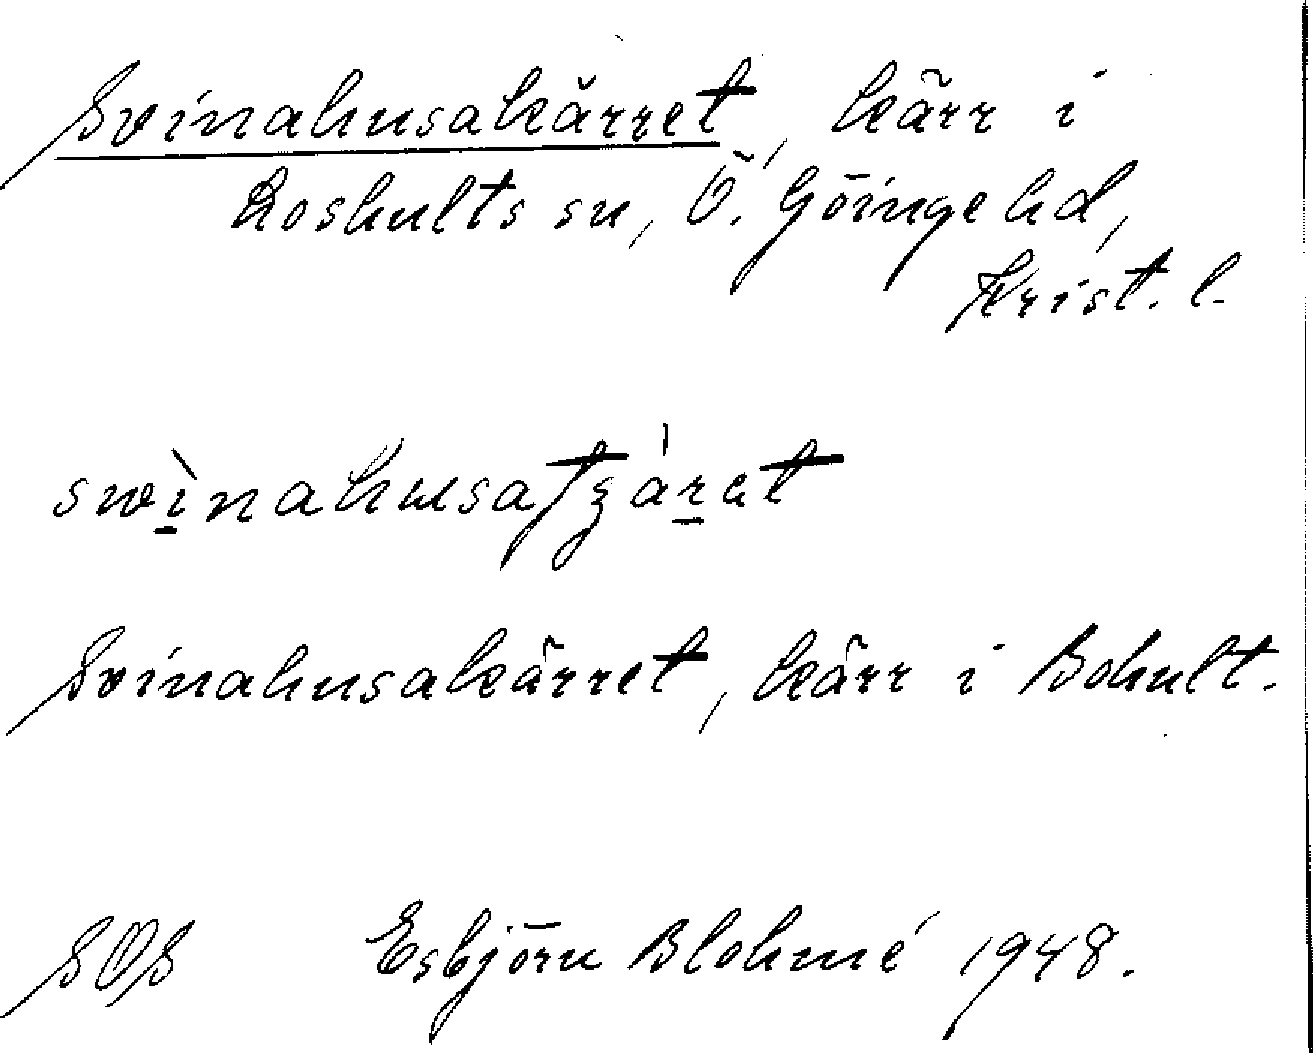 Svinahusakärret, kärr i
Loshults sn, Ö. Göinge hd,
Krist. l.
Svinahusakärret, kärr i Bohult.
SOS Esbjörn Blohmé 1948.